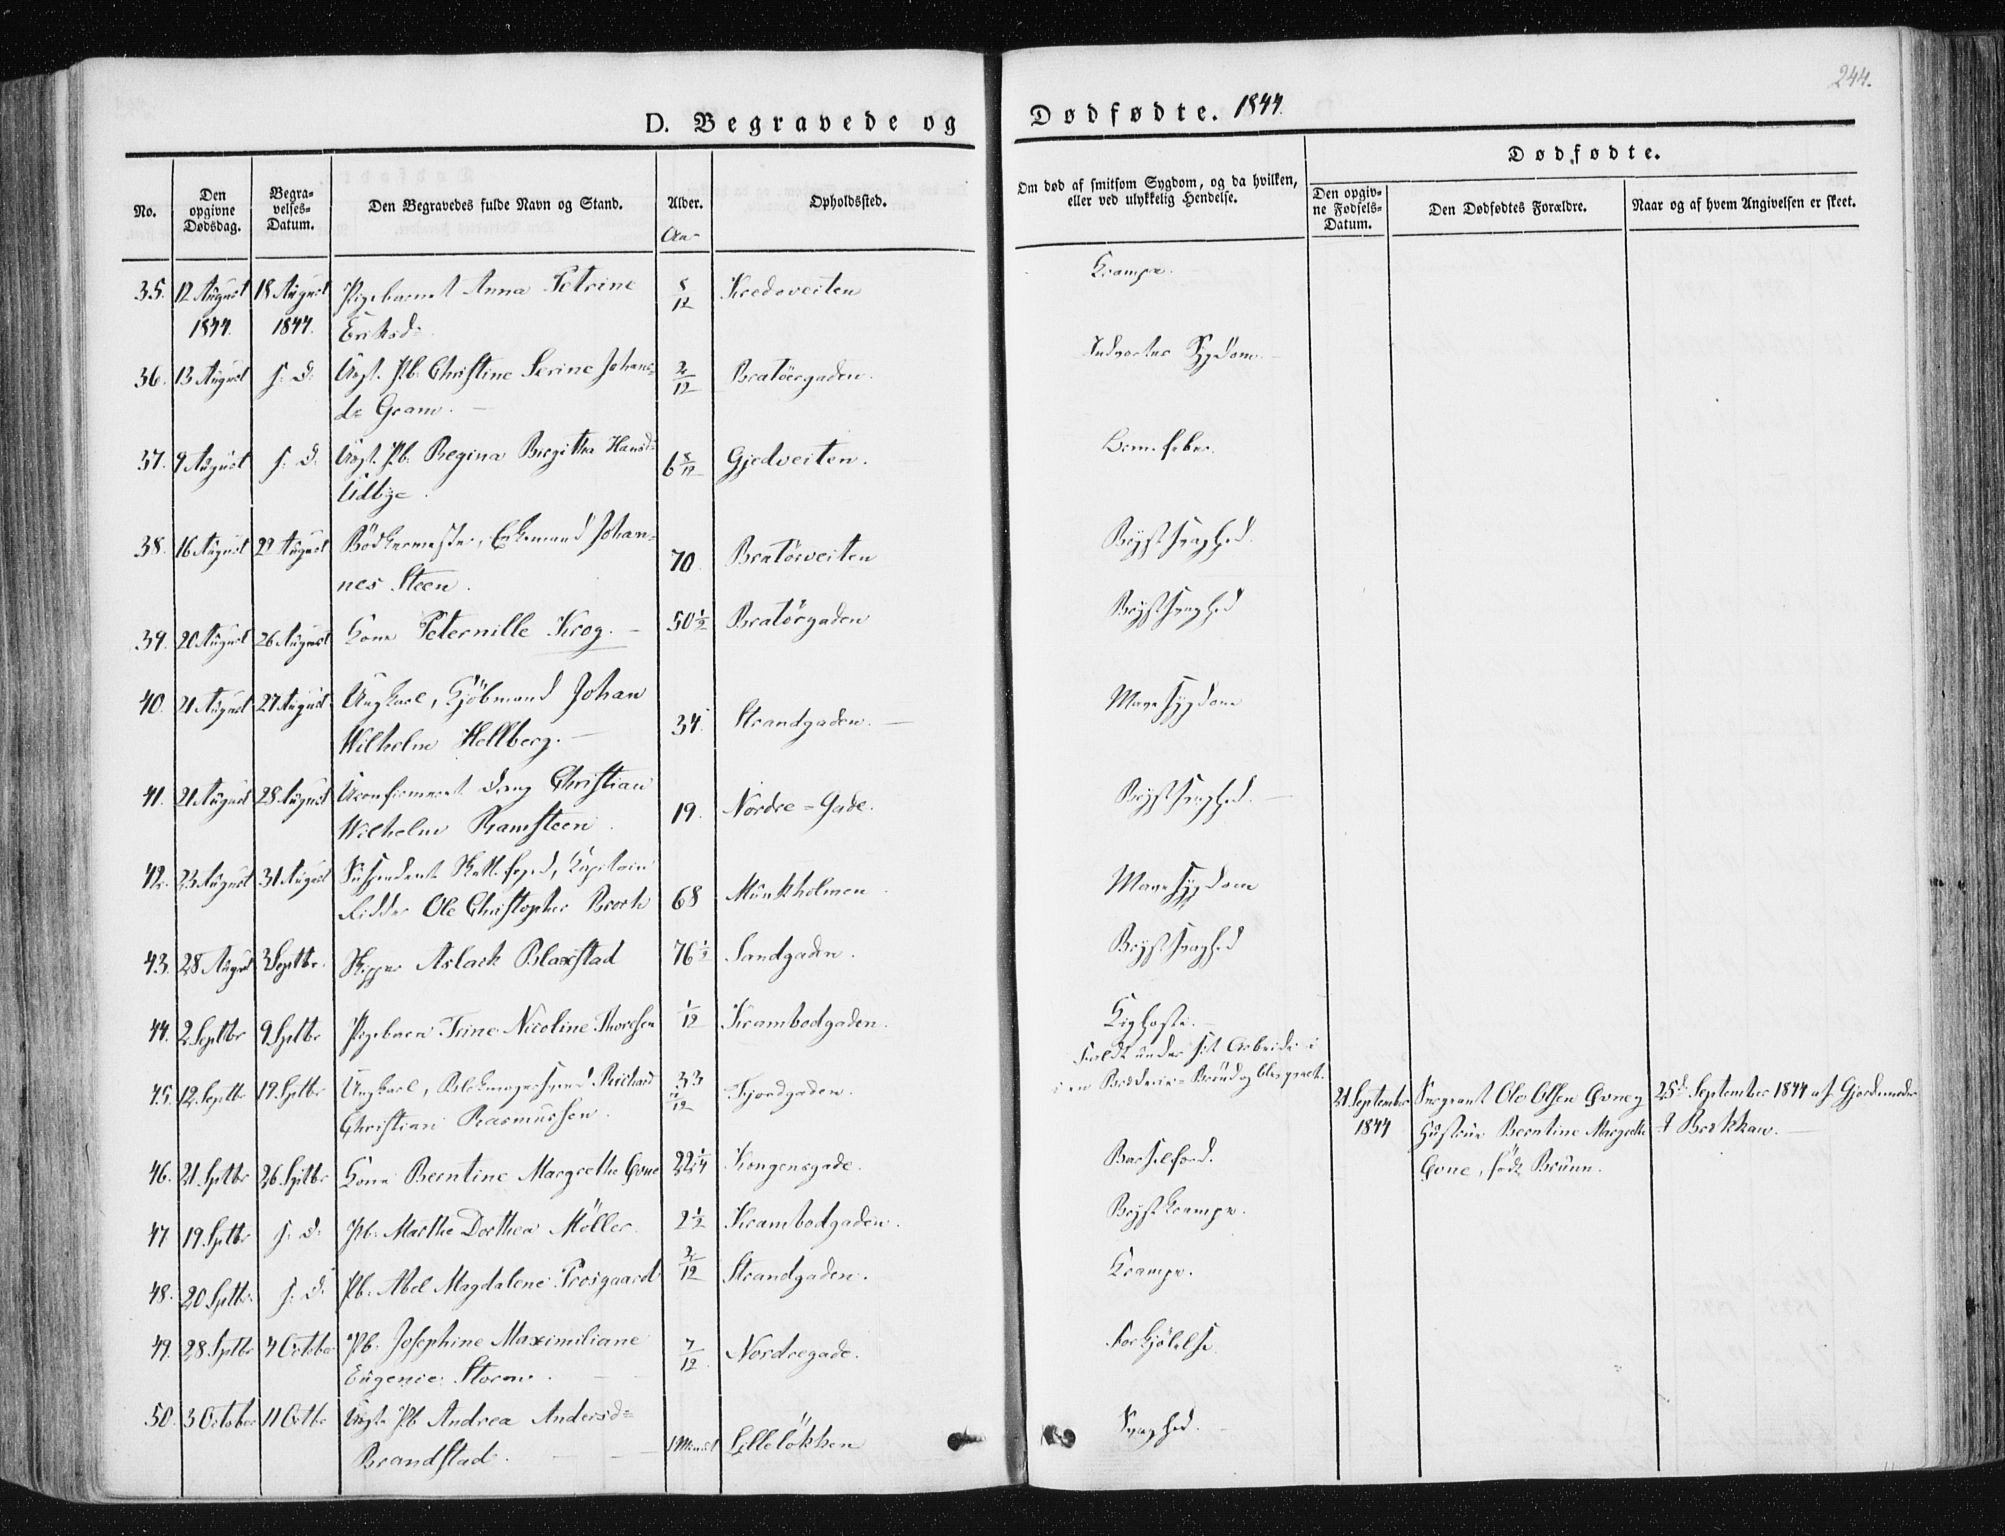 244.
D. Begravede og Dødfødte. 1844.
No.
Den opgivne Dødsdag.
Begravelses-Datum.
Den Begravedes fulde Navn og Stand.
Alder.
Aar
Opholdssted.
Om død af smitsom Sygdom, og da hvilken, eller ved ulykkelig Hendelse.
Dødfødte.
Den opgivne Fødsels-Datum.
Den Dødfødtes Forældre.
Naar og af hvem Angivelsen er skeet.
35. 12 August 18 August Pigebarnet Anna Petrine 5/12 Krodoveiten Krampe.
1844. 1844. Eriksd:
36. 13 August s: D: Uægt. Pb. Christine Serine Johans- 2/12 Bratöergaden. Indvortes Sygdom.
dr Gram.
37. 9 August s: D. Uægt. Pb. Regina Birgitha Hansd: 6 5/12 Gjedveiten.
Udbye.
38. 16 August 22 August Bödkermester, Enkemand Johan- 70 Bratörveiten Brystsvaghed.
nes Steen.
39. 20 August 26 August Kone Peternille Krog. 50 1/2 Bratörgaden Brystsvaghed
40. 21 August 27 August Ungkarl, Kjöbmand Johan 34. Strandgaden. Mavesygdom
Wilhelm Hellberg.
41. 21 August 28 August Uconfirmeret Dreng Christian 19. Nordre-Gade. Brystsvaghed.
Wilhelm Ramsteen.
42. 23 August 31 August Suspenderet Kapitain 68 Munkholmen Mavesygdom
Ridder Ole Christopher Broch
43. 28 August 3 Septbr. Skipper Aslack Blaxstad 76 1/2 Sandgaden. Brystsvaghed
44. 2 Septbr 9 Septbr Pigebarn Trine Nicoline Thoresen 1/12 Krambodgaden. Kighoste.
45. 12 Septbr 19 Septbr Ungkarl, Blikmagersvend Richard 33 Fjordgaden. Faldt under sit Arbeide
Christian Rasmussen.
46. 21 Septbr 26 Septbr Kone Berntine Margrethe Gvne 22 1/4 Kongensgade. Barselfærd.
21 September 1844 Sergeant Ole Olsen Gvne og 25d September 1844 af Gjordemoder
Hustrue Berntine Margrethe Brækkan.
Gvne, född Bruun.
47 19 Septbr s: D: Pb. Marthe Dorthea Möller. 2 1/2 Krambodgaden. Brystkrampe.
48. 20 Septbr s: D: Pb. Abel Magdalene Trosgaard 2/12 Strandgaden. Krampe.
49. 28 Septbr 4 October Pb. Josephine Maximiliane 7/12 Nordregade. Forkjölelse.
Eugenie Storm.
50. 3 October 11 Octbr Uægte Pb Andrea Andersd: 1 Minut Lilleløkken Svaghed.
Brandstad.